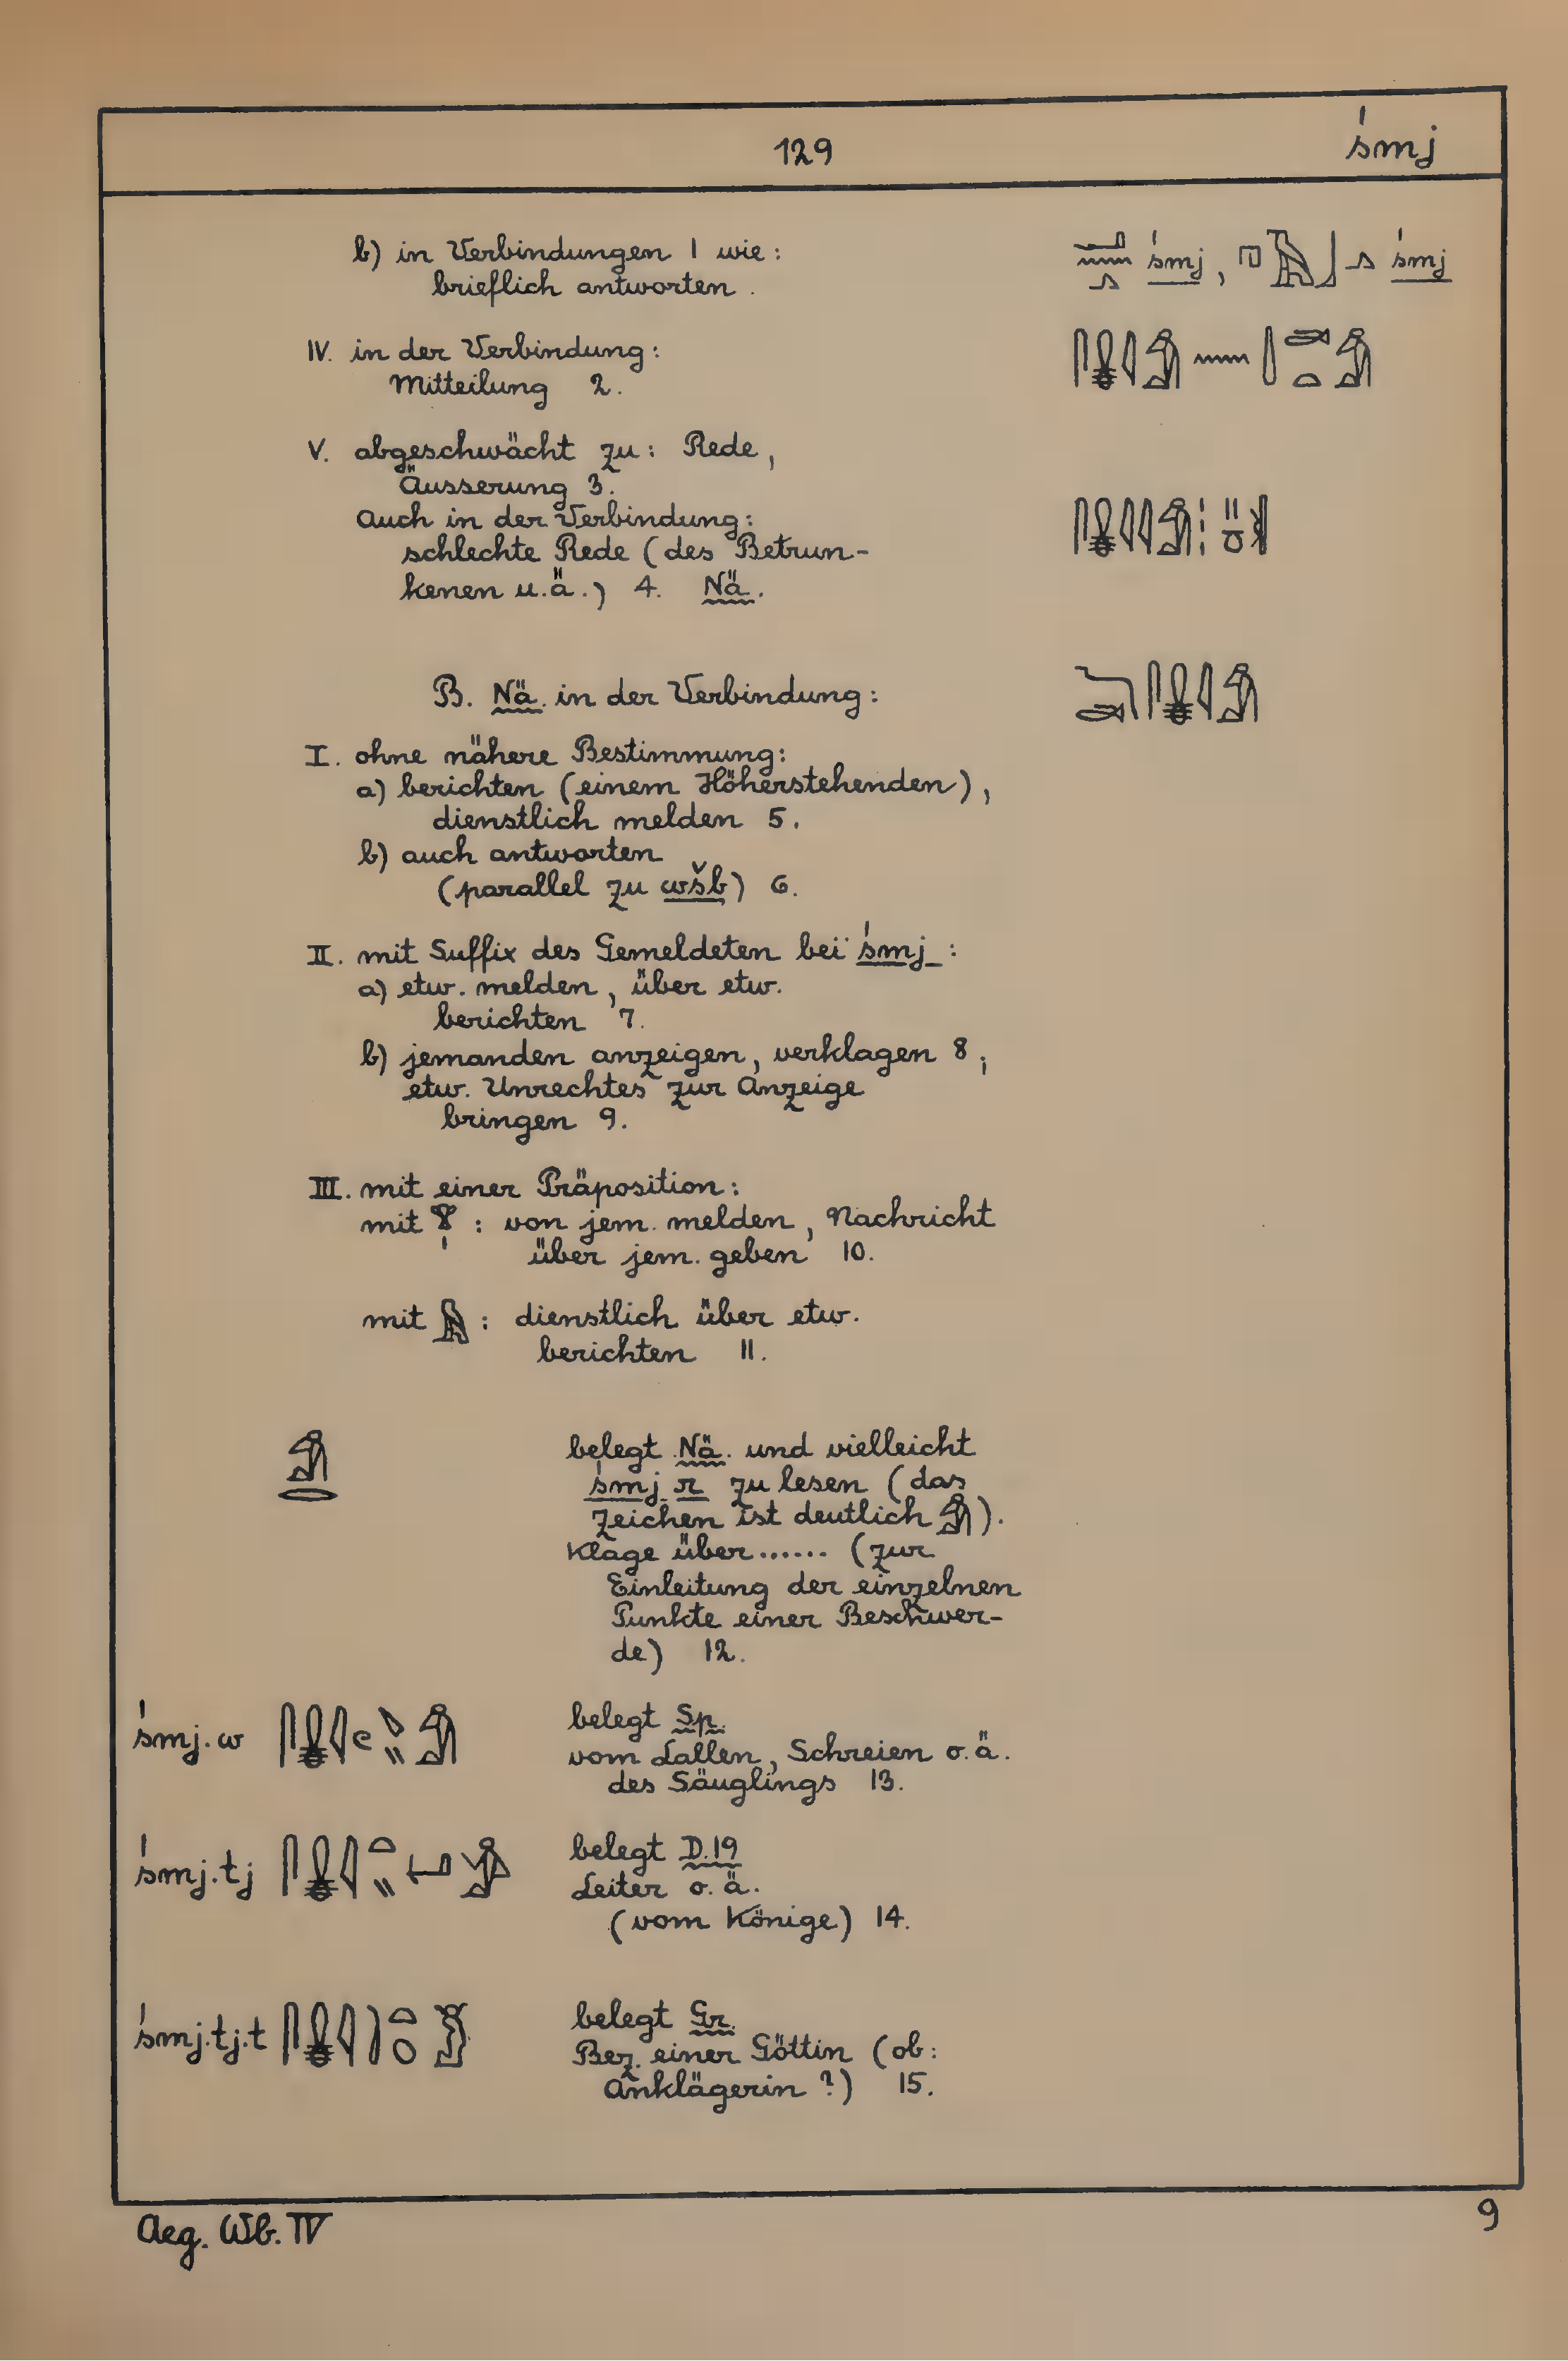 129  śmj
b) in Verbindungen 1 wie: śmj, śmj
brieflich antworten.
IV. in der Verbindung:
Mitteilung 2.
V. abgeschwächt zu: Rede,
Äusserung 3.
Auch in der Verbindung:
schlechte Rede (des Betrun-
kenen u.ä.) 4. Nä.
B. Nä. in der Verbindung:
I. ohne nähere Bestimmung:
a) berichten (einem Höherstehenden),
dienstlich melden 5.
b) auch antworten
(parallel zu wšb) 6.
II. mit Suffix des Gemeldeten bei śmj:
a) etw. melden, über etw.
berichten 7.
b) jemanden anzeigen, verklagen 8;
etw. Unrechtes zur Anzeige
bringen 9.
III. mit einer Präposition:
mit 𓁷𓏤: von jem. melden, Nachricht
über jem. geben 10.
mit 𓅓: dienstlich über etw.
berichten 11.
belegt Nä. und vielleicht
śmj r zu lesen (das
Zeichen ist deutlich 𓀁).
Klage über...... (zur
Einleitung der einzelnen
Punkte einer Beschwer-
de) 12.
śmj.w belegt Sp.
vom Lallen, Schreien o.ä.
des Säuglings 13.
śmj.tj belegt D.19
Leiter o.ä.
(vom Könige) 14.
śmj.tj.t belegt Gr.
Bez. einer Göttin (ob:
Anklägerin?) 15.
Aeg. Wb. IV 9